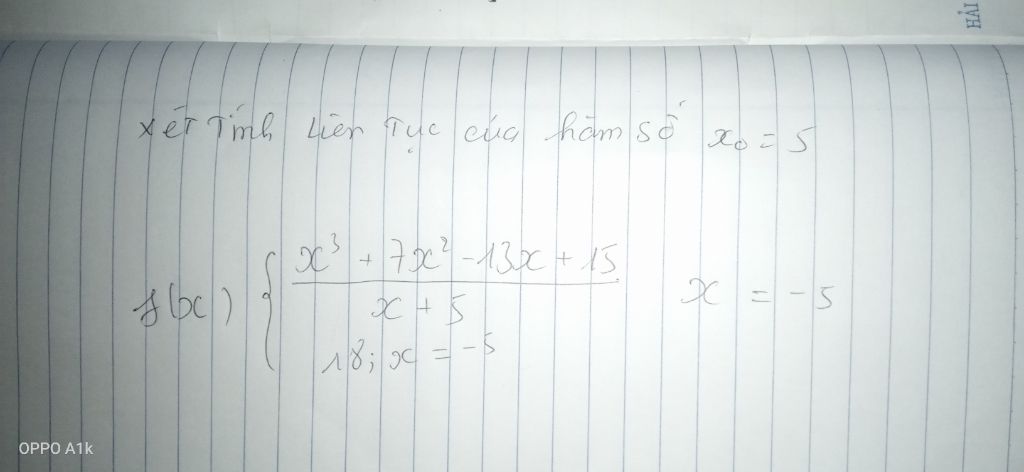 HẢI
xét tính liên tục của hàm số x₀ = 5
f(x) { x³ + 7x² - 13x + 15 / x + 5 x = -5
18; x = -5
OPPO A1k